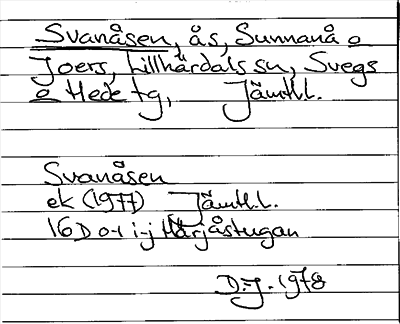 Svanåsen, ås, Sunnanå o
Joers, Lillhärdals sn, Svegs
o Hede tg, Jämtl.l.
Svanåsen
ek (1977) Jämtl.l.
16D 0-1 i-j Härjåstugan
D.J. 1978